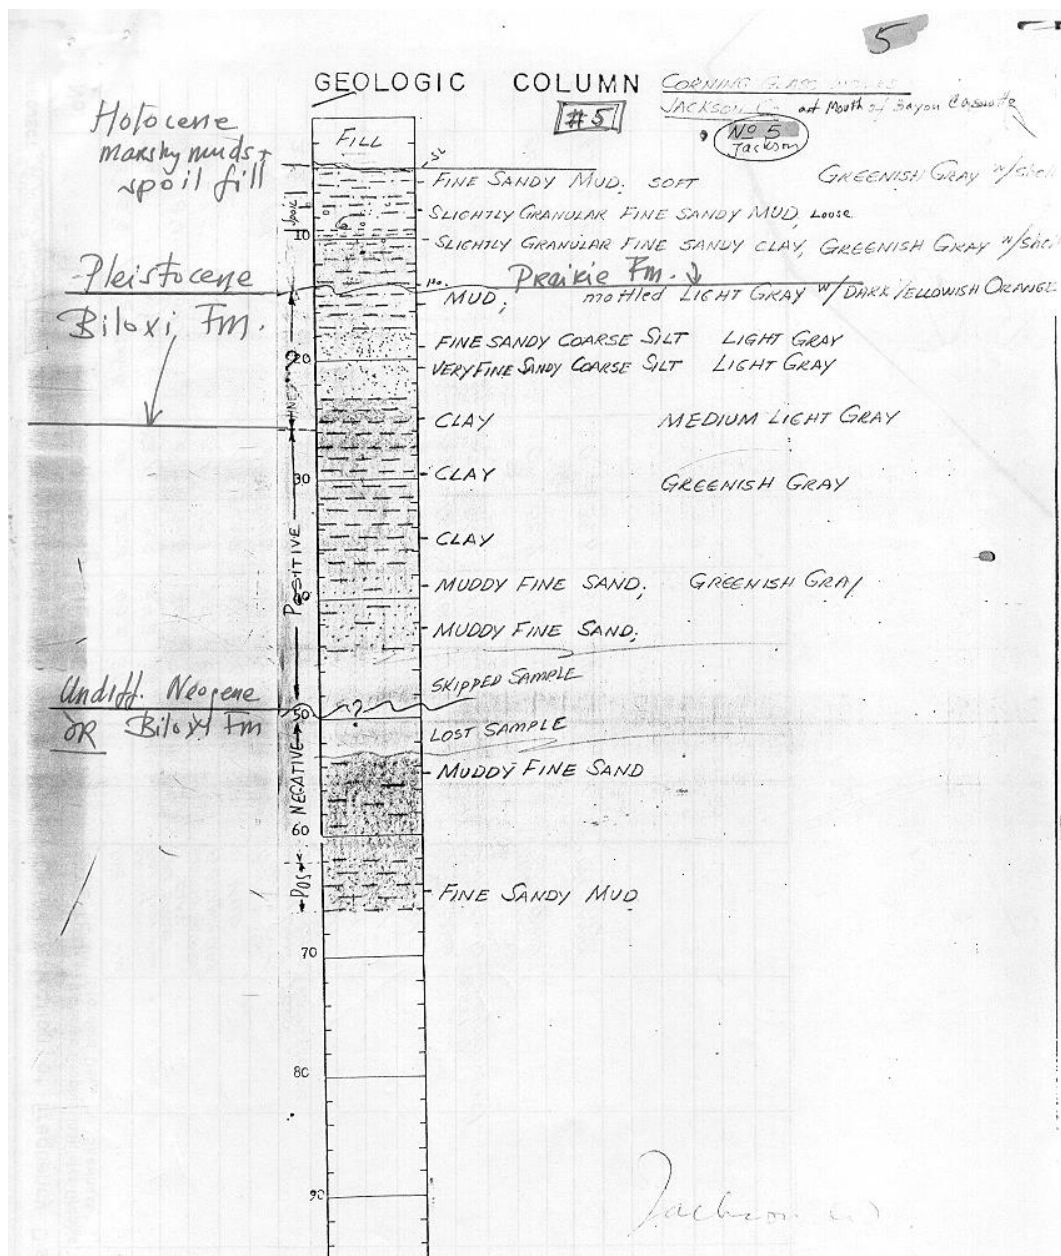 5
GEOLOGIC COLUMN CORNING GLASS WORKS
JACKSON Co. at Mouth of Bayou Casotte
#5
No 5
Jackson
Holocene
marshy muds +
spoil fill
FILL
SL
FINE SANDY MUD; SOFT GREENISH GRAY W/shell
SLIGHTLY GRANULAR FINE SANDY MUD, Loose
10
SLIGHTLY GRANULAR FINE SANDY CLAY, GREENISH GRAY W/shell
Pleistocene
Prairie Fm.
MUD; mottled LIGHT GRAY W/DARK YELLOWISH ORANGE
Biloxi Fm.
FINE SANDY COARSE SILT LIGHT GRAY
20
VERY FINE SANDY COARSE SILT LIGHT GRAY
CLAY MEDIUM LIGHT GRAY
CLAY
30
GREENISH GRAY
CLAY
POSITIVE
MUDDY FINE SAND; GREENISH GRAY
40
MUDDY FINE SAND;
SKIPPED SAMPLE
Undiff. Neogene
OR Biloxi Fm
?
50
LOST SAMPLE
NEGATIVE
MUDDY FINE SAND
60
POS
FINE SANDY MUD
70
80
90
Jackson Co.